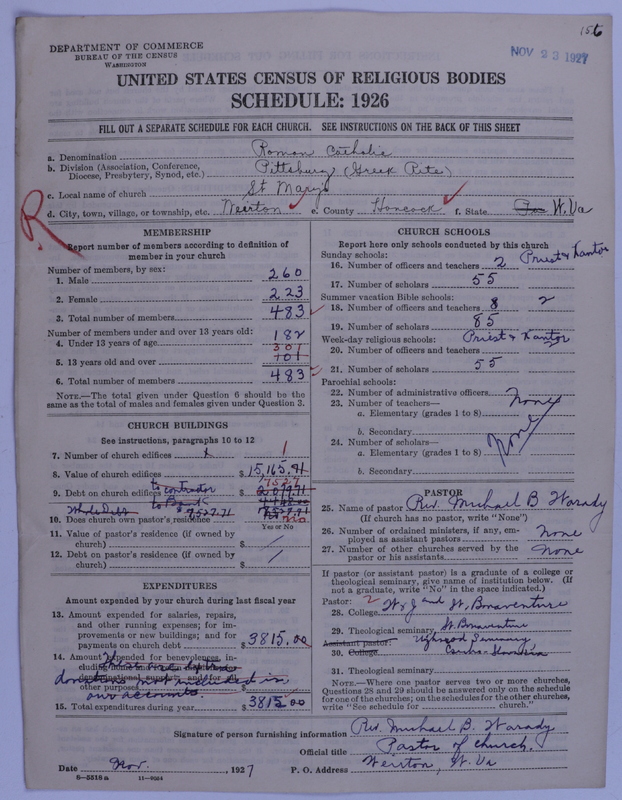 156
NOV 23 1927
DEPARTMENT OF COMMERCE
BUREAU OF THE CENSUS
WASHINGTON
UNITED STATES CENSUS OF RELIGIOUS BODIES
SCHEDULE: 1926
FILL OUT A SEPARATE SCHEDULE FOR EACH CHURCH. SEE INSTRUCTIONS ON THE BACK OF THIS SHEET
a. Denomination Roman Catholic
b. Division (Association, Conference, Diocese, Presbytery, Synod, etc.) Pittsburg (Greek Rite)
c. Local name of church St Marys
d. City, town, village, or township, etc. Weirton e. County Hancock f. State W. Va
R
MEMBERSHIP
Report number of members according to definition of
member in your church
Number of members, by sex:
1. Male 260
2. Female 223
3. Total number of members 483
Number of members under and over 13 years old:
4. Under 13 years of age 182
301
5. 13 years old and over 101
6. Total number of members 483
NOTE.—The total given under Question 6 should be
same as the total of males and females given under Question 3.
CHURCH BUILDINGS
See instructions, paragraphs 10 to 12
7. Number of church edifices 1
8. Value of church edifices $15,165.91
to contractor 7527
9. Debt on church edifices $
to Bank
Whole Debt 7527.71
10. Does church own pastor's residence No
Yes or No
11. Value of pastor's residence (if owned by
church) $
12. Debt on pastor's residence (if owned by
church) $
EXPENDITURES
Amount expended by your church during last fiscal year
13. Amount expended for salaries, repairs,
and other running expenses; for im-
provements or new buildings; and for
payments on church debt $3815.00
14. Amount expended for benevolences, in-
donation not included in
other purposes
our accounts.
15. Total expenditures during year $3815.00
CHURCH SCHOOLS
Report here only schools conducted by this church
Sunday schools:
16. Number of officers and teachers 2 Priest & Kantor
17. Number of scholars 55
Summer vacation Bible schools:
18. Number of officers and teachers 8 2
19. Number of scholars 85
Week-day religious schools: Priest & Kantor
20. Number of officers and teachers
21. Number of scholars 55
Parochial schools:
22. Number of administrative officers None
23. Number of teachers—
a. Elementary (grades 1 to 8)
b. Secondary
24. Number of scholars—
a. Elementary (grades 1 to 8)
None
b. Secondary
PASTOR
25. Name of pastor Rev. Michael B Warady
(If church has no pastor, write "None")
26. Number of ordained ministers, if any, em-
ployed as assistant pastors None
27. Number of other churches served by the
pastor or his assistants None
If pastor (or assistant pastor) is a graduate of a college or
theological seminary, give name of institution below. (If
not a graduate, write "No" in the space indicated.)
Pastor: 2
28. College W & J and St. Bonaventure
29. Theological seminary St. Bonaventure
Assistant pastor: Seminary
30. College
31. Theological seminary
NOTE.—Where one pastor serves two or more churches,
Questions 28 and 29 should be answered only on the schedule
for one of the churches; on the schedules for the other churches,
write "See schedule for church."
Signature of person furnishing information Rev. Michael B. Warady
Official title Pastor of church.
Date Nov. , 1927 P. O. Address Weirton, W. Va
6—5518a 11—9564